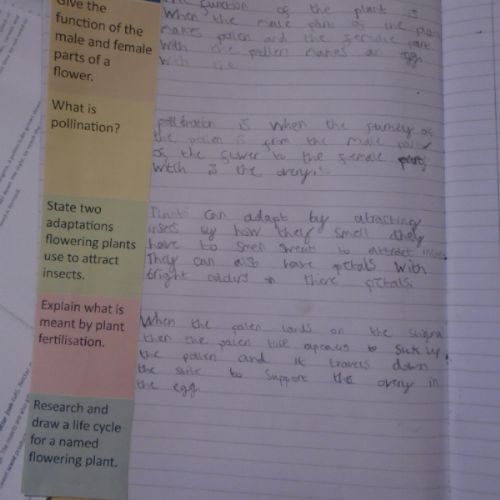 Give the
function of the
male and female
parts of a
flower.
The function of the plant is
When the male part of the
makes pollen and the female part
With the pollen makes an egg
With the
What is
pollination?
pollination is When the journey of
the pollen is from the male part
of the flower to the female part
Witch is the overy.
State two
adaptations
flowering plants
use to attract
insects.
can adapt by atracting
insects by how they smell they
have to smell sweet to attract
They can also have petals With
bright colours on there petals
Explain what is
meant by plant
fertilisation.
When the palen lands on the stigma
then the palen tube apears to suck up
the pollen and it travels down
the stile to support the overy in
the egg
Research and
draw a life cycle
for a named
flowering plant.